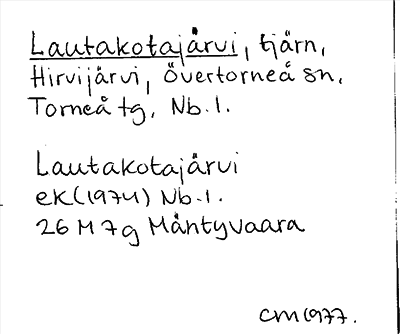 Lautakotajärvi, tjärn,
Hirvijärvi, Övertorneå sn.
Torneå tg, Nb. l.
Lautakotajärvi
ek(1974) Nb. l.
26 M 7g Mäntyvaara
CM 1977.